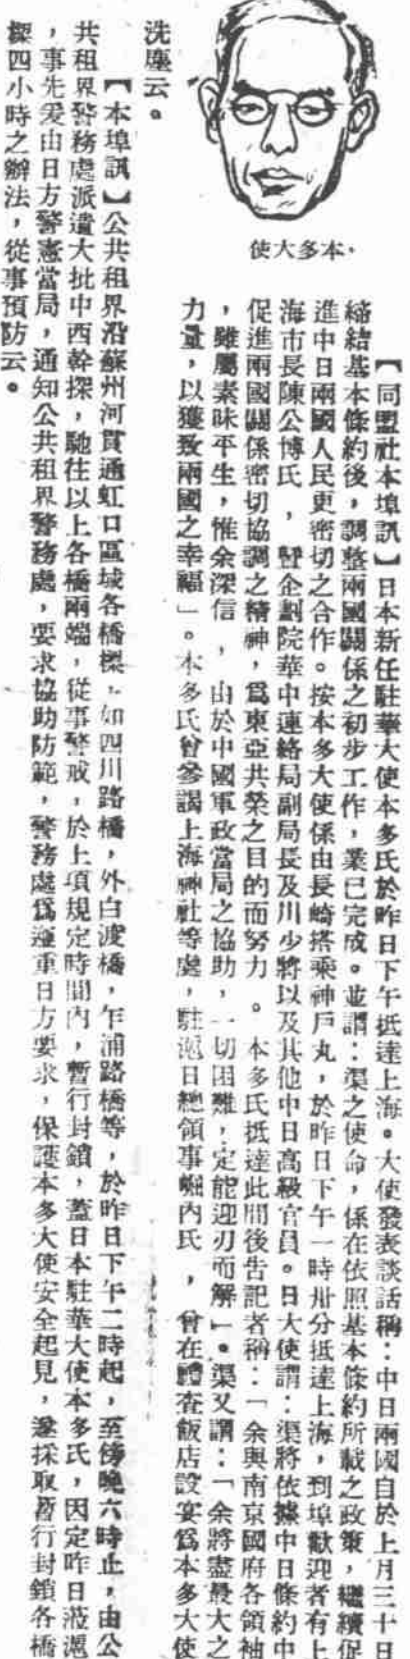 本多大使
【同盟社本埠訊】日本新任駐華大使本多氏於昨日下午抵達上海。大使發表談話稱：中日兩國自於上月三十日
締結基本條約後，調整兩國關係之初步工作，業已完成。並謂：渠之使命，係在依照基本條約所載之政策，繼續促
進中日兩國人民更密切之合作。按本多大使係由長崎搭乘神戶丸，於昨日下午一時卅分抵達上海，到埠歡迎者有上
海市長陳公博氏，暨企劃院華中連絡局副局長及川少將以及其他中日高級官員。日大使謂：渠將依據中日條約中
促進兩國關係密切協調之精神，爲東亞共榮之目的而努力。本多氏抵達此間後告記者稱：「余與南京國府各領袖
，雖屬素昧平生，惟余深信，由於中國軍政當局之協助，一切困難，定能迎刃而解」。渠又謂：「余將盡最大之
力量，以獲致兩國之幸福」。本多氏曾參謁上海神社等處，駐滬日總領事堀內氏，曾在禮查飯店設宴爲本多大使
洗塵云。
【本埠訊】公共租界沿蘇州河貫通虹口區域各橋樑，如四川路橋，外白渡橋，乍浦路橋等，於昨日下午二時起，至傍晚六時止，由公
共租界警務處派遣大批中西幹探，馳往以上各橋兩端，從事警戒，於上項規定時間內，暫行封鎖，蓋日本駐華大使本多氏，因定昨日蒞滬
，事先爰由日方警憲當局，通知公共租界警務處，要求協助防範，警務處爲遵重日方要求，保護本多大使安全起見，遂採取暫行封鎖各橋
樑四小時之辦法，從事預防云。